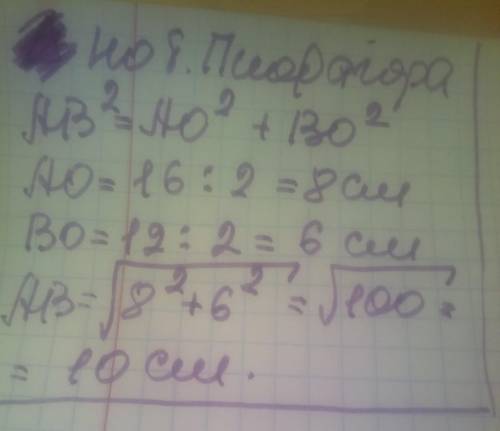 По т. Пифагора
AB² = AO² + BO²
AO = 16 : 2 = 8 см
BO = 12 : 2 = 6 см
AB = √8² + 6² = √100 =
= 10 см.